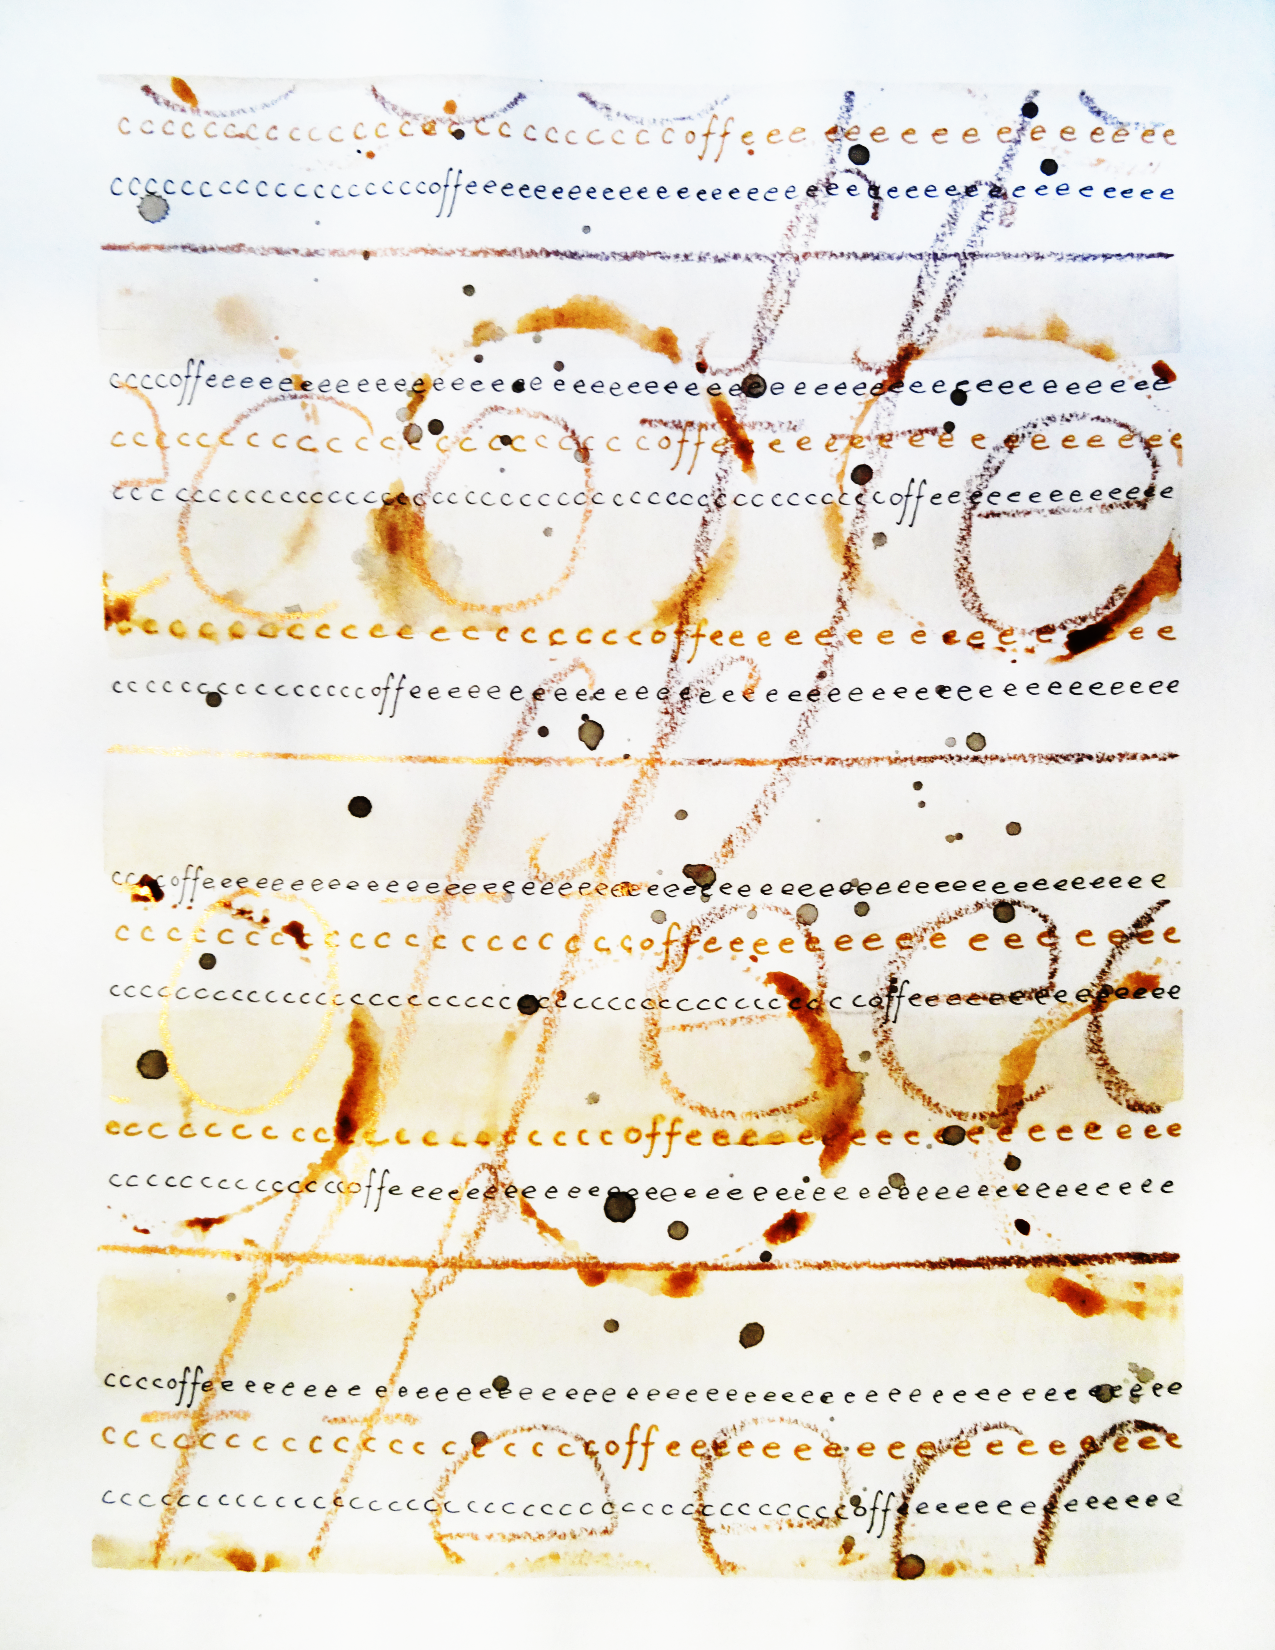 cccccccccccccccccccccccccoffeeeeeeeeeeeeeeee
ccccccccccccccccccoffeeeeeeeeeeeeeeeeeeeeeeeeeeeeeeeeeeeeeee
ccccoffeeeeeeeeeeeeeeeeeeeeeeeeeeeeeeeeeeeeeeeeeeeeeee
ccccccccccccccccccccccoffeeeeeeeeeeeeeeeee
cccccccccccccccccccccccccccccccccccccccccccoffeeeeeeeeeeeee
ccccccccccccccccccccoffeeeeeeeeeeeeeeeee
cccccccccccccccoffeeeeeeeeeeeeeeeeeeeeeeeeeeeeeeeeeeeeee
ccccoffeeeeeeeeeeeeeeeeeeeeeeeeeeeeeeeeeeeeeeeeeeeeeeeeeee
cccccccccccccccccccoffeeeeeeeeeeeeeeeeee
ccccccccccccccccccccccccccccccccccccccccccoffeeeeeeeeeeeeeee
ccccccccccccccccccoffeeeeeeeeeeeeeeeeee
cccccccccccccccoffeeeeeeeeeeeeeeeeeeeeeeeeeeeeeeeeeeeeee
ccccoffeeeeeeeeeeeeeeeeeeeeeeeeeeeeeeeeeeeeeeeeeeeeeee
ccccccccccccccccccoffeeeeeeeeeeeeeeeeeee
cccccccccccccccccccccccccccccccccccccccoffeeeeeeeeeeeeeee